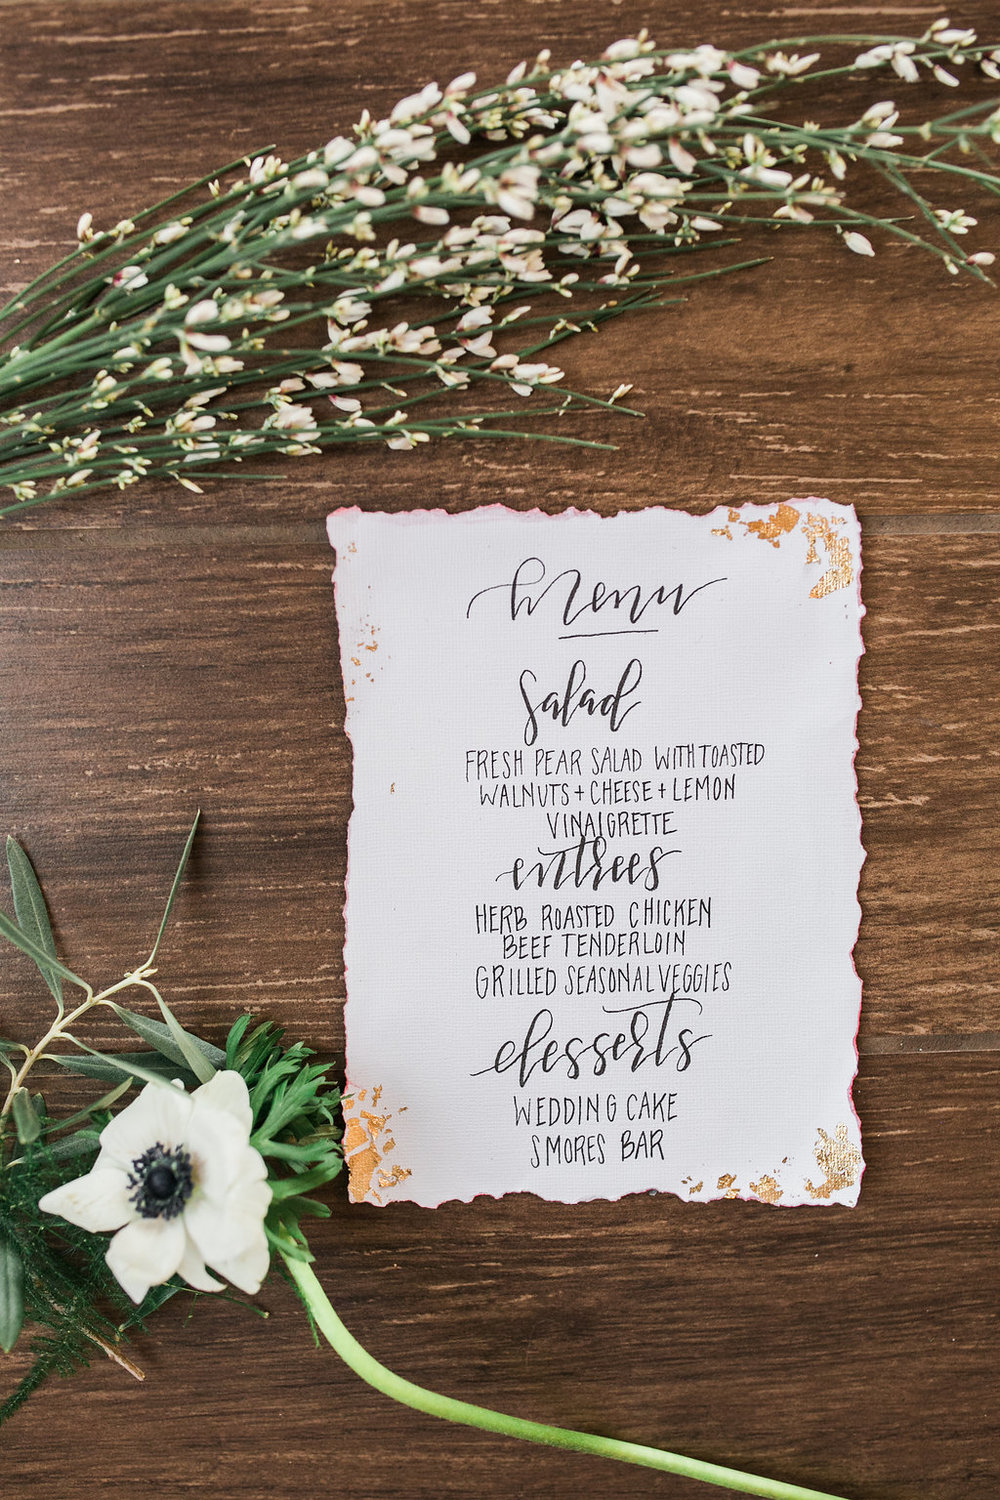 menu
salad
FRESH PEAR SALAD WITH TOASTED
WALNUTS + CHEESE + LEMON
VINAIGRETTE
entrees
HERB ROASTED CHICKEN
BEEF TENDERLOIN
GRILLED SEASONAL VEGGIES
desserts
WEDDING CAKE
SMORES BAR